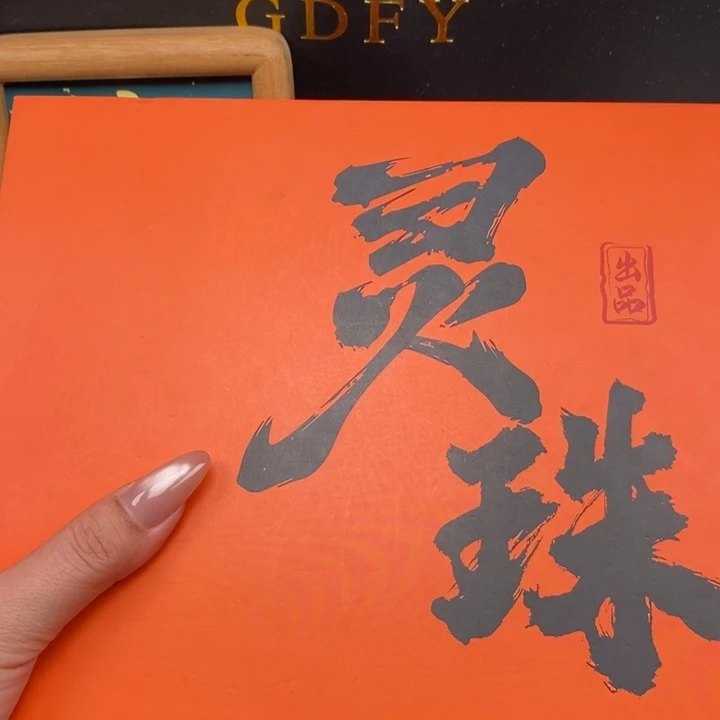 GDFY
灵
珠
出
品